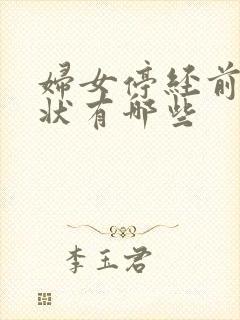 婦女停経前
状有哪些
李玉君